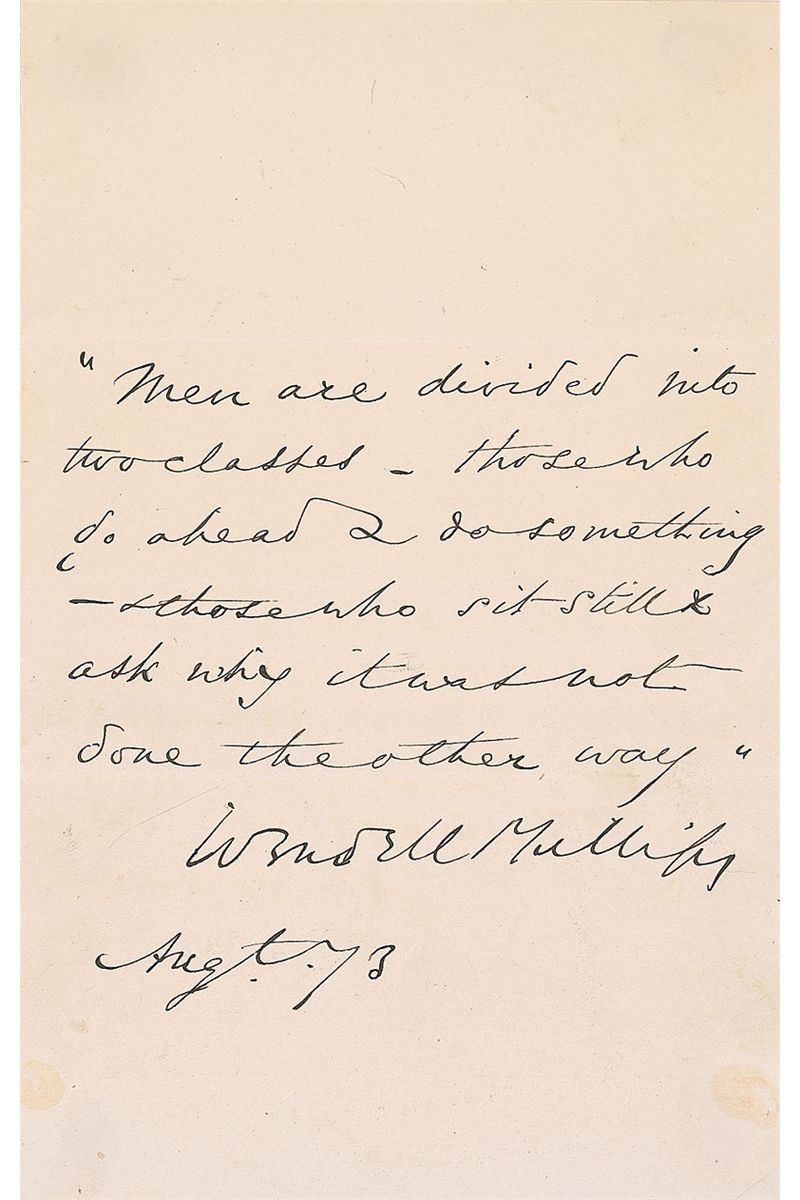 "Men are divided into
two classes – those who
go ahead & do something
– & those who sit still &
ask why it was not
done the other way"
Wendell Phillips
Augt. 73